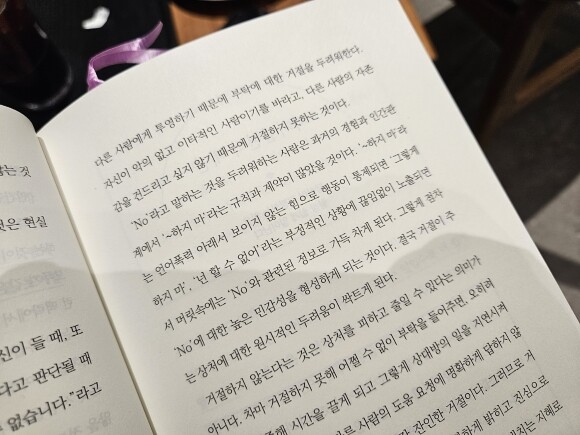 않는 것
것은 현실
신이 들 때, 또
다고 판단될 때
없습니다."라고
다른 사람에게 투영하기 때문에 부탁에 대한 거절을 두려워한다.
자신이 악의 없고 이타적인 사람이기를 바라고, 다른 사람의 자존
감을 건드리고 싶지 않기 때문에 거절하지 못하는 것이다.
'No'라고 말하는 것을 두려워하는 사람은 과거의 경험과 인간관
계에서 '~하지 마'라는 규칙과 제약이 많았을 것이다. '~하지 마'라
는 언어폭력 아래서 보이지 않는 힘으로 행동이 통제되면 '그렇게
하지 마', '넌 할 수 없어'라는 부정적인 상황에 끊임없이 노출되면
서 머릿속에는 'No'와 관련된 정보로 가득 차게 된다. 그렇게 점차
'No'에 대한 높은 민감성을 형성하게 되는 것이다. 결국 거절이 주
는 상처에 대한 원시적인 두려움이 싹트게 된다.
거절하지 않는다는 것은 상처를 피하고 줄일 수 있다는 의미가
아니다. 차마 거절하지 못해 어쩔 수 없이 부탁을 들어주면, 오히려
시간을 끌게 되고 그렇게 상대방의 일을 지연시켜
사람의 도움 요청에 명확하게 답하지 않
잔인한 거절이다. 그러므로 거
하게 밝히고 진심으로
지혜로